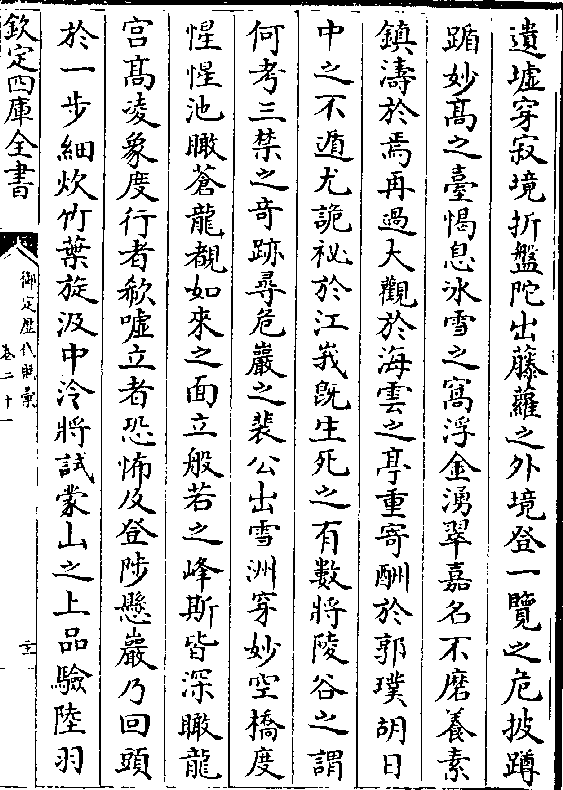 遺墟穿寂境折盤陀出藤蘿之外境登一覽之危披蹲
踊妙髙之臺愒息冰雪之窩浮金湧翠嘉名不磨養素
鎮濤於焉再過大觀於海雲之亭重寄酬於郭璞胡日
中之不遁尤詭祕於江峩既生死之有數將陵谷之謂
何考三禁之奇跡尋危巖之裴公出雪洲穿妙空橋度
惺惺池瞰蒼龍覩如來之面立般若之峰斯皆深瞰龍
宫髙凌象度行者欷嘘立者恐怖及登陟懸巖乃回頭
於一步細炊竹葉旋汲中泠將試蒙山之上品驗陸羽
欽定四庫全書
御定歴代賦彙
卷二十一